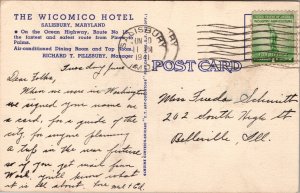 THE WICOMICO HOTEL
SALISBURY, MARYLAND
On the Ocean Highway, Route No. 13,
the fastest and safest route from Pines to
Palms.
Air-conditioned Dining Room and Tap Room
RICHARD T. PILLSBURY, Manager
SALISBURY
JUN 10
11 PM
1941
MD.
POST CARD
Tuesday June
Dear Folks,
When we were in Washington
we signed your name on
a card, for a guide of the
city for anyone planning
a trip in the near future
so if you get mail from
Wash. you'll know what
it is all about.
Miss Frieda Schmitt
202 South High St
Belleville, Ill.